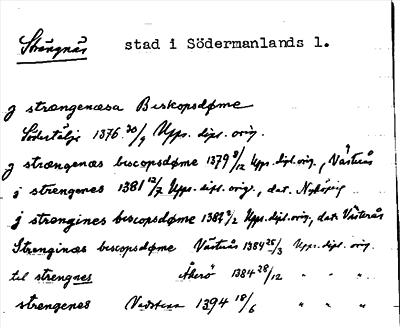 Strängnäs stad i Södermanlands l.
j strængenæsa Biskopsdøme
Södertälje 1376 30/9 Upps. dipl. orig.
j strængenæs biscopsdøme 1379 9/12 Upps. dipl. orig., Västerås
i strengenes 1381 12/7 Upps. dipl. orig., dat. Nyköping
j strengines biscopsdøme 1382 2/2 Upps. dipl. orig., dat. Västerås
Strenginæs biscopsdøme Västerås 1384 25/3 Upps. dipl. orig.
til strengnes Åkerö 1384 28/12 " " "
strengenes Vadstena 1394 18/6 " " "